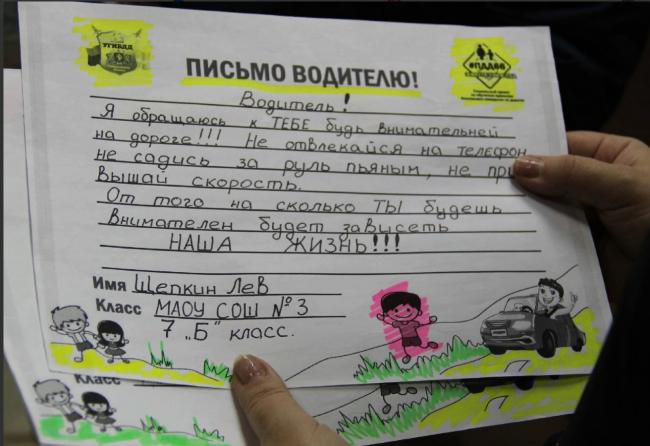 УГИБДД
#ПДД66
ПИСЬМО ВОДИТЕЛЮ!
Водитель!
Я обращаюсь к ТЕБЕ будь внимательней
на дороге!!! Не отвлекайся на телефон
не садись за руль пьяным, не при
вышай скорость.
От того на сколько ТЫ будешь
внимателен будет зависеть
НАША ЖИЗНЬ!!!
Имя Щепкин Лев
Класс МАОУ СОШ №3
7 „Б" класс.
Класс